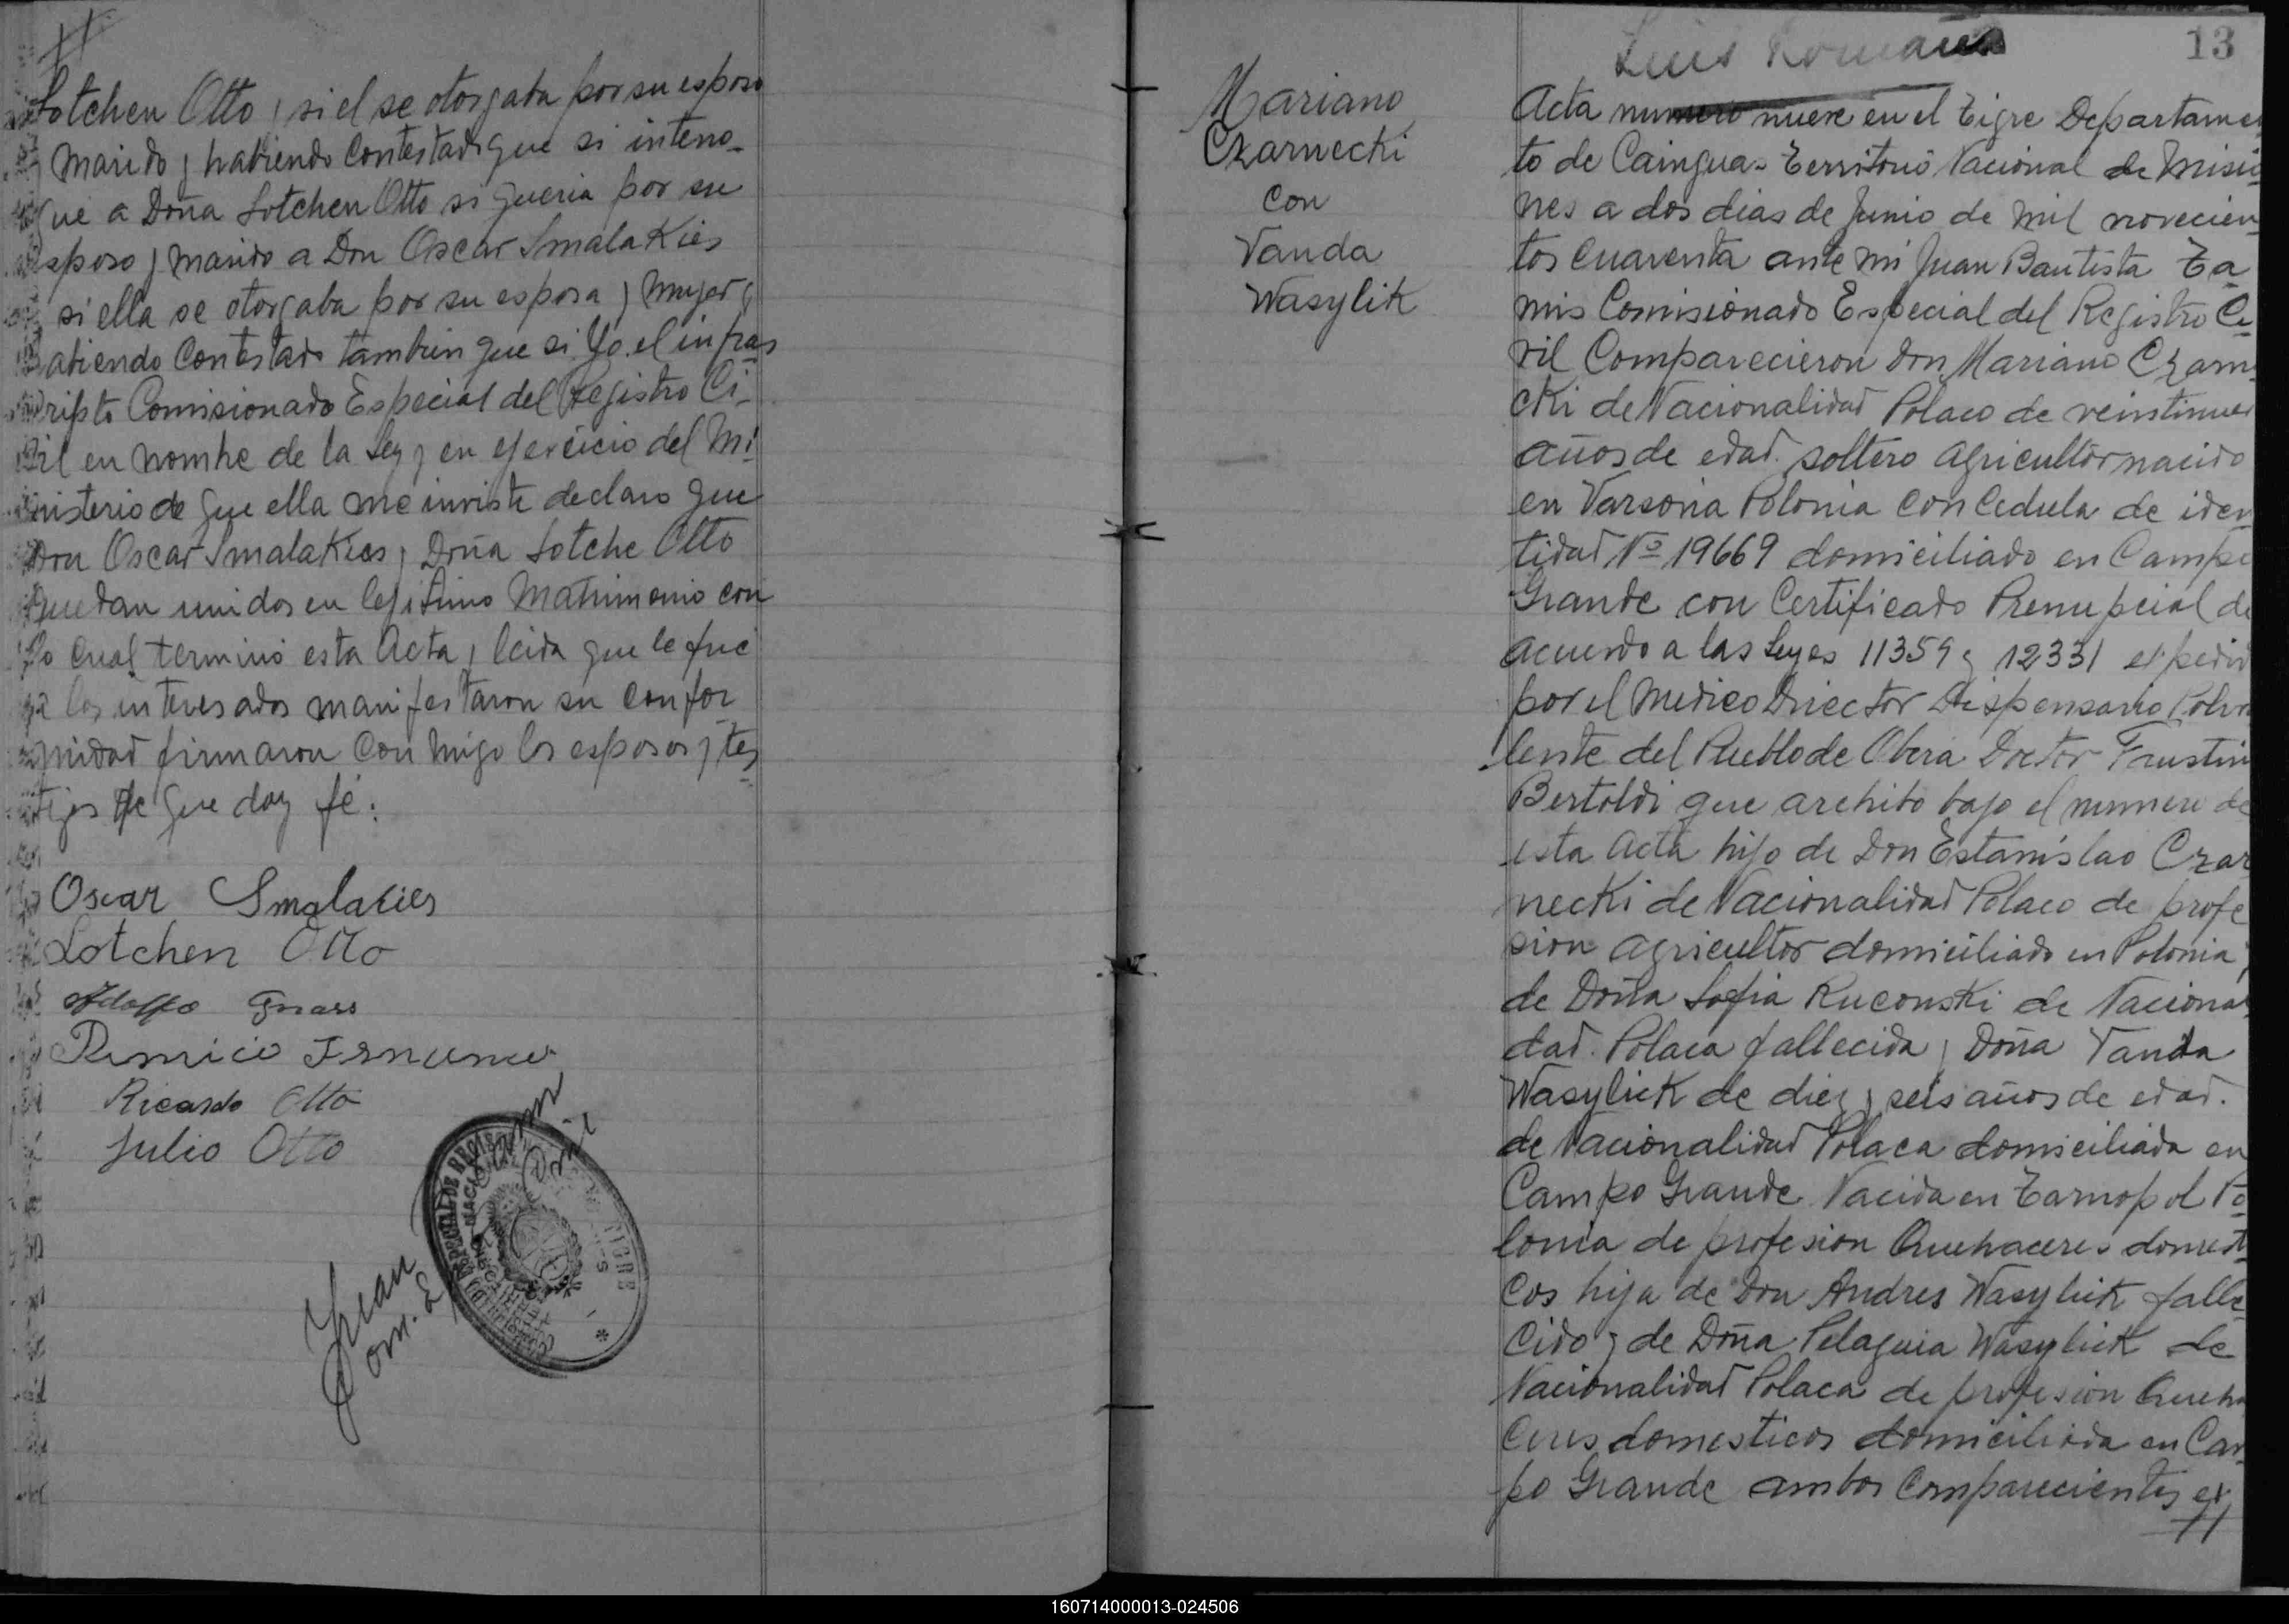 Lotchen Otto y si el se otorgaba por su esposo
y marido y habiendo Contestado que si interro-
gué a Doña Lotchen Otto si queria por su
esposo y marido a Don Oscar Smalakies
y si ella se otorgaba por su esposa y mujer y
habiendo Contestado tambien que si Yo el infras
cripto Comisionado Especial del Registro Ci-
vil en nombre de la Ley y en ejercicio del Mi-
nisterio de que ella me inviste declaro que
Don Oscar Smalakies y Doña Lotche Otto
quedan unidos en lejitimo Matrimonio con
lo cual terminó esta Acta y leida que le fué
a los interesados manifestaron su confor
midad firmaron Con migo los esposos y tes
tigos de que doy fé:
Oscar Smalakies
Lotchen Otto
Adolfo
Ricardo Otto
Julio Otto
Juan
Com. E
13
Luis
Mariano
Czarnecki
Con
Vanda
Wasylik
Acta numero nueve en el Tigre Departamen
to de Cainguas Territorio Nacional de Misio
nes a dos dias de Junio de mil novecien
tos cuarenta ante mi Juan Bautista Ta
mis Comisionado Especial del Registro Ci-
vil Comparecieron Don Mariano Czarne
cki de Nacionalidad Polaco de veintinueve
años de edad. soltero agricultor nacido
en Varsovia Polonia con Cedula de iden
tidad Nº 19669 domiciliado en Campo
Grande con Certificado Prenupcial de
acuerdo a las Leyes 11359 y 12331 expedido
por el Medico Director Dispensario Poliva
lente del Pueblo de Obera Doctor Faustino
Bertoldi que archibo bajo el numero de
esta Acta hijo de Don Estanislao Czar
necki de Nacionalidad Polaco de profe
sion agricultor domiciliado en Polonia y
de Doña Sofia Ruconski de Nacionali
dad. Polaca fallecida y Doña Vanda
Wasylick de diez y seis años de edad.
de Nacionalidad Polaca domiciliada en
Campo Grande Nacida en Tarnopol Po
lonia de profesion Quehaceres domesti
cos hija de Don Andres Wasylick falle
cido y de Doña Pelaguia Wasylick de
Nacionalidad Polaca de profesion Queha
ceres domesticos domiciliada en Cam
po Grande ambos Comparecientes ex
160714000013-024506